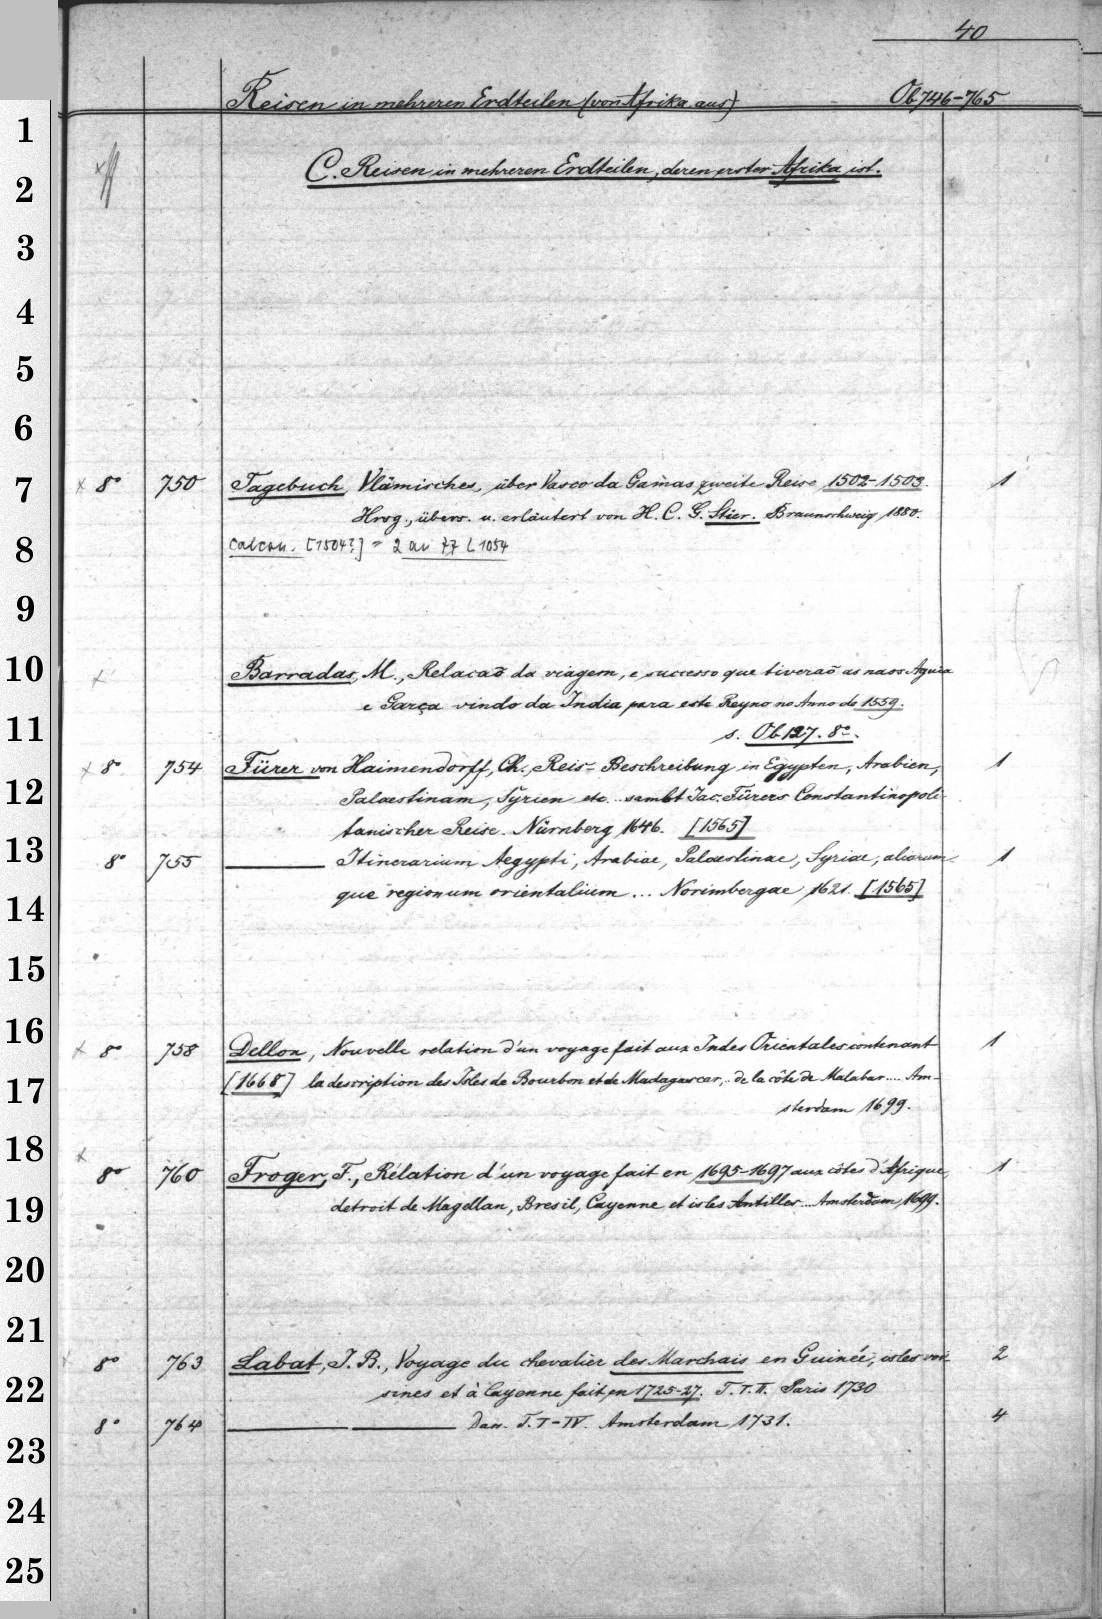 40
Reisen in mehreren Erdteilen (von Afrika aus) Ob 746-765
C. Reisen in mehreren Erdteilen, deren erster Afrika ist.
× 8° 750 Tagebuch, Vlämisches, über Vasco da Gamas zweite Reise 1502-1503. 1
Hrsg., übers. u. erläutert von H. C. G. Stier. Braunschweig 1880.
Calcou. [1504?] = 2 an 77 L 1054
× Barradas, M., Relacaõ da viagem, e successo que tiveraõ as naos Aguia
e Garça vindo da India para este Reyno no Anno de 1559.
s. Ob 127. 8°.
× 8° 754 Fürer von Haimendorff, Ch., Reis-Beschreibung in Egypten, Arabien, 1
Palaestinam, Syrien etc. .. sambt Jac. Fürers Constantinopoli-
tanischer Reise. Nürnberg 1646. [1565]
8° 755 Itinerarium Aegypti, Arabiae, Palaestinae, Syriae, aliarum- 1
que regionum orientalium ... Norimbergae 1621. [1565]
× 8° 758 Dellon, Nouvelle relation d'un voyage fait aux Indes Orientales contenant 1
[1668] la description des Isles de Bourbon et de Madagascar, .. de la côte de Malabar .... Am-
sterdam 1699.
× 8° 760 Froger, F., Rélation d'un voyage fait en 1695-1697 aux côtes d'Afrique, 1
detroit de Magellan, Bresil, Cayenne et isles Antilles ... Amsterdam 1699.
8° 763 Labat, J. B., Voyage du chevalier des Marchais en Guinée, isles voi- 2
sines et à Cayenne fait en 1725-27. T. I. II. Paris 1730
8° 764 Dass. T. I-IV. Amsterdam 1731. 4
1
2
3
4
5
6
7
8
9
10
11
12
13
14
15
16
17
18
19
20
21
22
23
24
25